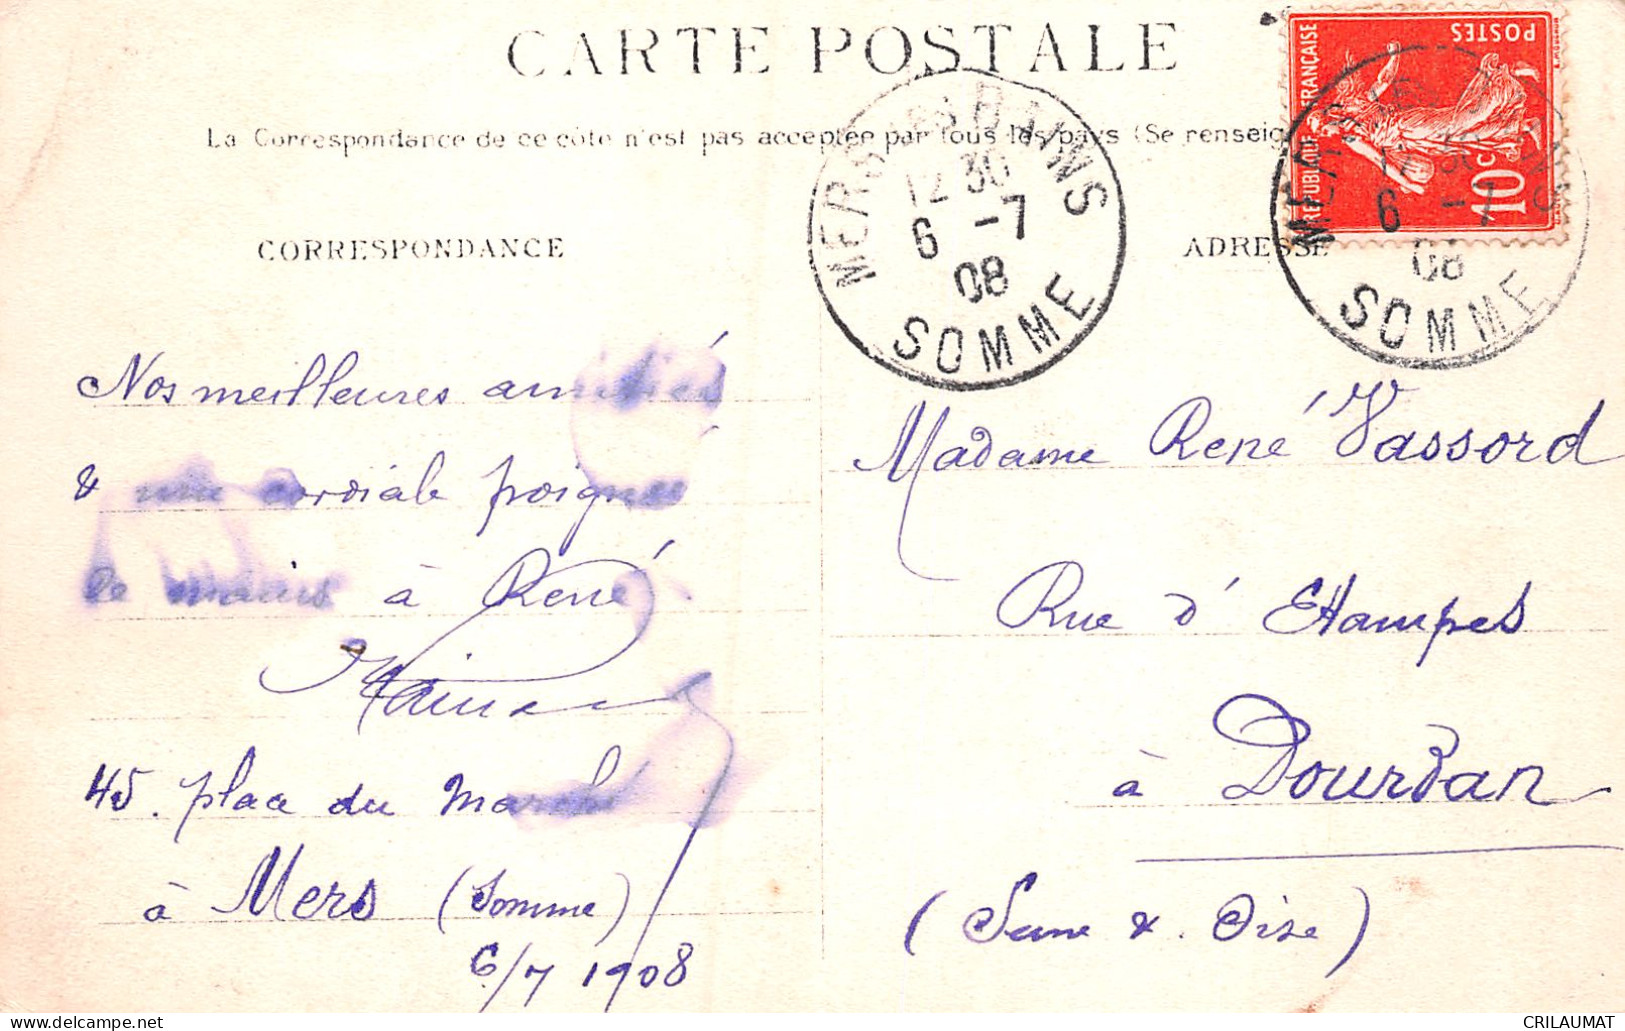 CARTE POSTALE
La Correspondance de ce côté n'est pas acceptée par tous les pays (Se renseig
CORRESPONDANCE
ADRESSE
REPUBLIQUE FRANÇAISE
POSTES
10c
MERS les BAINS
12 30
6 -7
08
SOMME
MERS les BAINS
12 30
6 -7
08
SOMME
Nos meilleures amitiés
& une cordiale poignée
de mains à René
45. place du Marché
à Mers (Somme)
6/7 1908
Madame René Vassord
Rue d'Etampes
à Dourdan
(Seine & . Oise)
CRILAUMAT